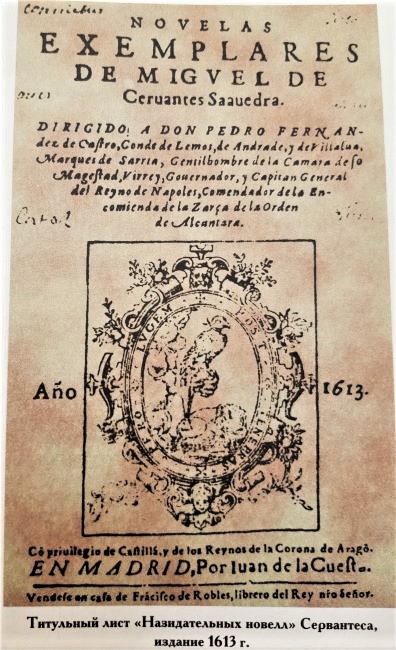 NOVELAS
EXEMPLARES
DE MIGVEL DE
Ceruantes Saauedra.
DIRIGIDO A DON PEDRO FERNAN-
dez de Castro, Conde de Lemos, de Andrade, y de Villalua,
Marques de Sarria, Gentilhombre de la Camara de so
Magestad, Virrey, Gouernador, y Capitan General
del Reyno de Napoles, Comendador de la En-
comienda de la Zarça de la Orden
de Alcantara.
POST TENEBRAS SPERO LVCEM
Año 1613.
Cõ priuilegio de Castilla, y de los Reynos de la Corona de Aragõ.
EN MADRID, Por Iuan de la Cuesta.
Vendese en casa de Frãcisco de Robles, librero del Rey nr̃o Señor.
Титульный лист «Назидательных новелл» Сервантеса,
издание 1613 г.